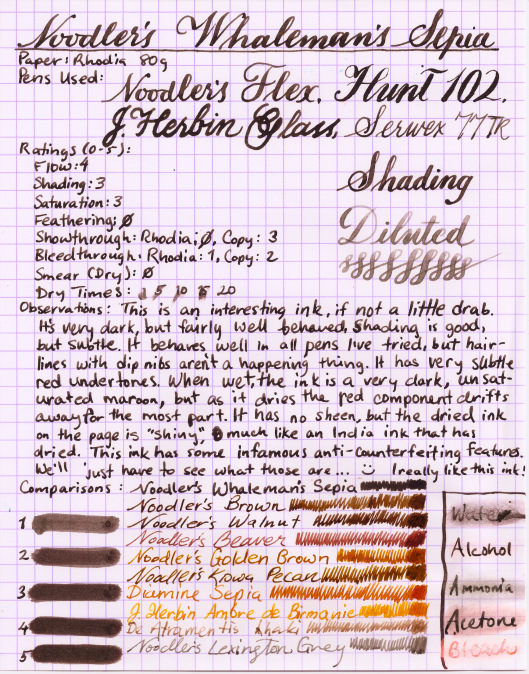 Noodler's Whaleman's Sepia
Paper: Rhodia 80g
Pens Used:
Noodler's Flex, Hunt 102,
J. Herbin Glass, Serwex 77TR
Ratings (0-5):
Flow: 4
Shading: 3
Saturation: 3
Feathering: Ø
Showthrough: Rhodia: Ø, Copy: 3
Bleedthrough: Rhodia: 1, Copy: 2
Smear (Dry): Ø
Dry Times: 1 5 10 15 20
Shading
Diluted
Observations: This is an interesting ink, if not a little drab.
It's very dark, but fairly well behaved, shading is good,
but subtle. It behaves well in all pens I've tried, but hair-
lines with dip nibs aren't a happening thing. It has very subtle
red undertones. When wet, the ink is a very dark, unsat-
urated maroon, but as it dries the red component drifts
away for the most part. It has no sheen, but the dried ink
on the page is "shiny," much like an India ink that has
dried. This ink has some infamous anti-counterfeiting features.
We'll just have to see what those are... I really like this ink!
Comparisons: Noodler's Whaleman's Sepia
Noodler's Brown
Noodler's Walnut
Noodler's Beaver
Noodler's Golden Brown
Noodler's Kowa Pecan
Diamine Sepia
J. Herbin Ambre de Birmanie
De Atramentis Khaki
Noodler's Lexington Grey
1
2
3
4
5
Water
Alcohol
Ammonia
Acetone
Bleach